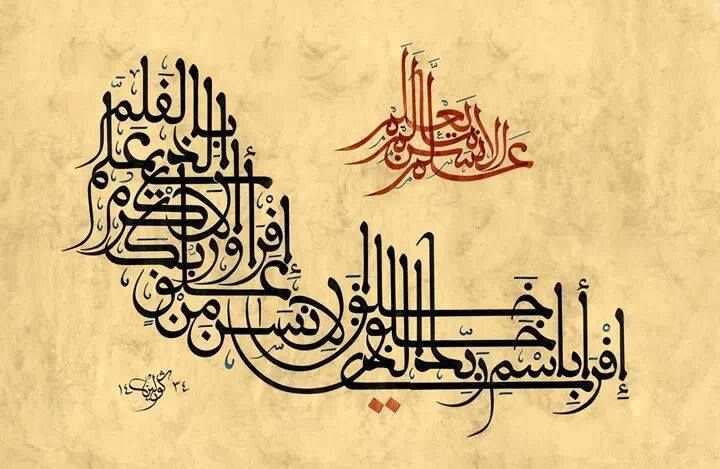 إِقْرَأ بِاسْمِ رَبِّكَ الَّذِي خَلَقَ
خَلَقَ الانسٰنَ مِنْ عَلَقٍ
إِقْرَأْ وَرَبُّكَ الاكْرَمُ
الَّذِي عَلَّمَ بِالْقَلَمِ
عَلَّمَ الانسٰنَ مَا لَمْ يَعْلَمْ
١٤٣٤